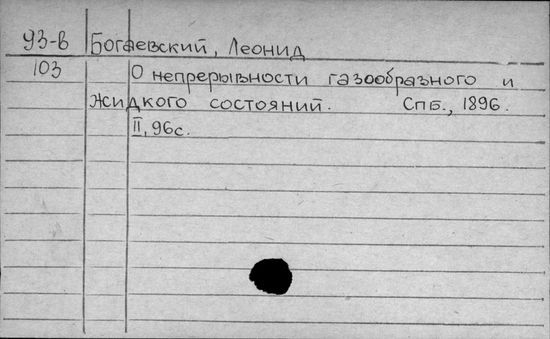 93-в Богаевский, Леонид
103 О непрерывности газообразного и
жидкого состояний. Спб., 1896.
II, 96с.